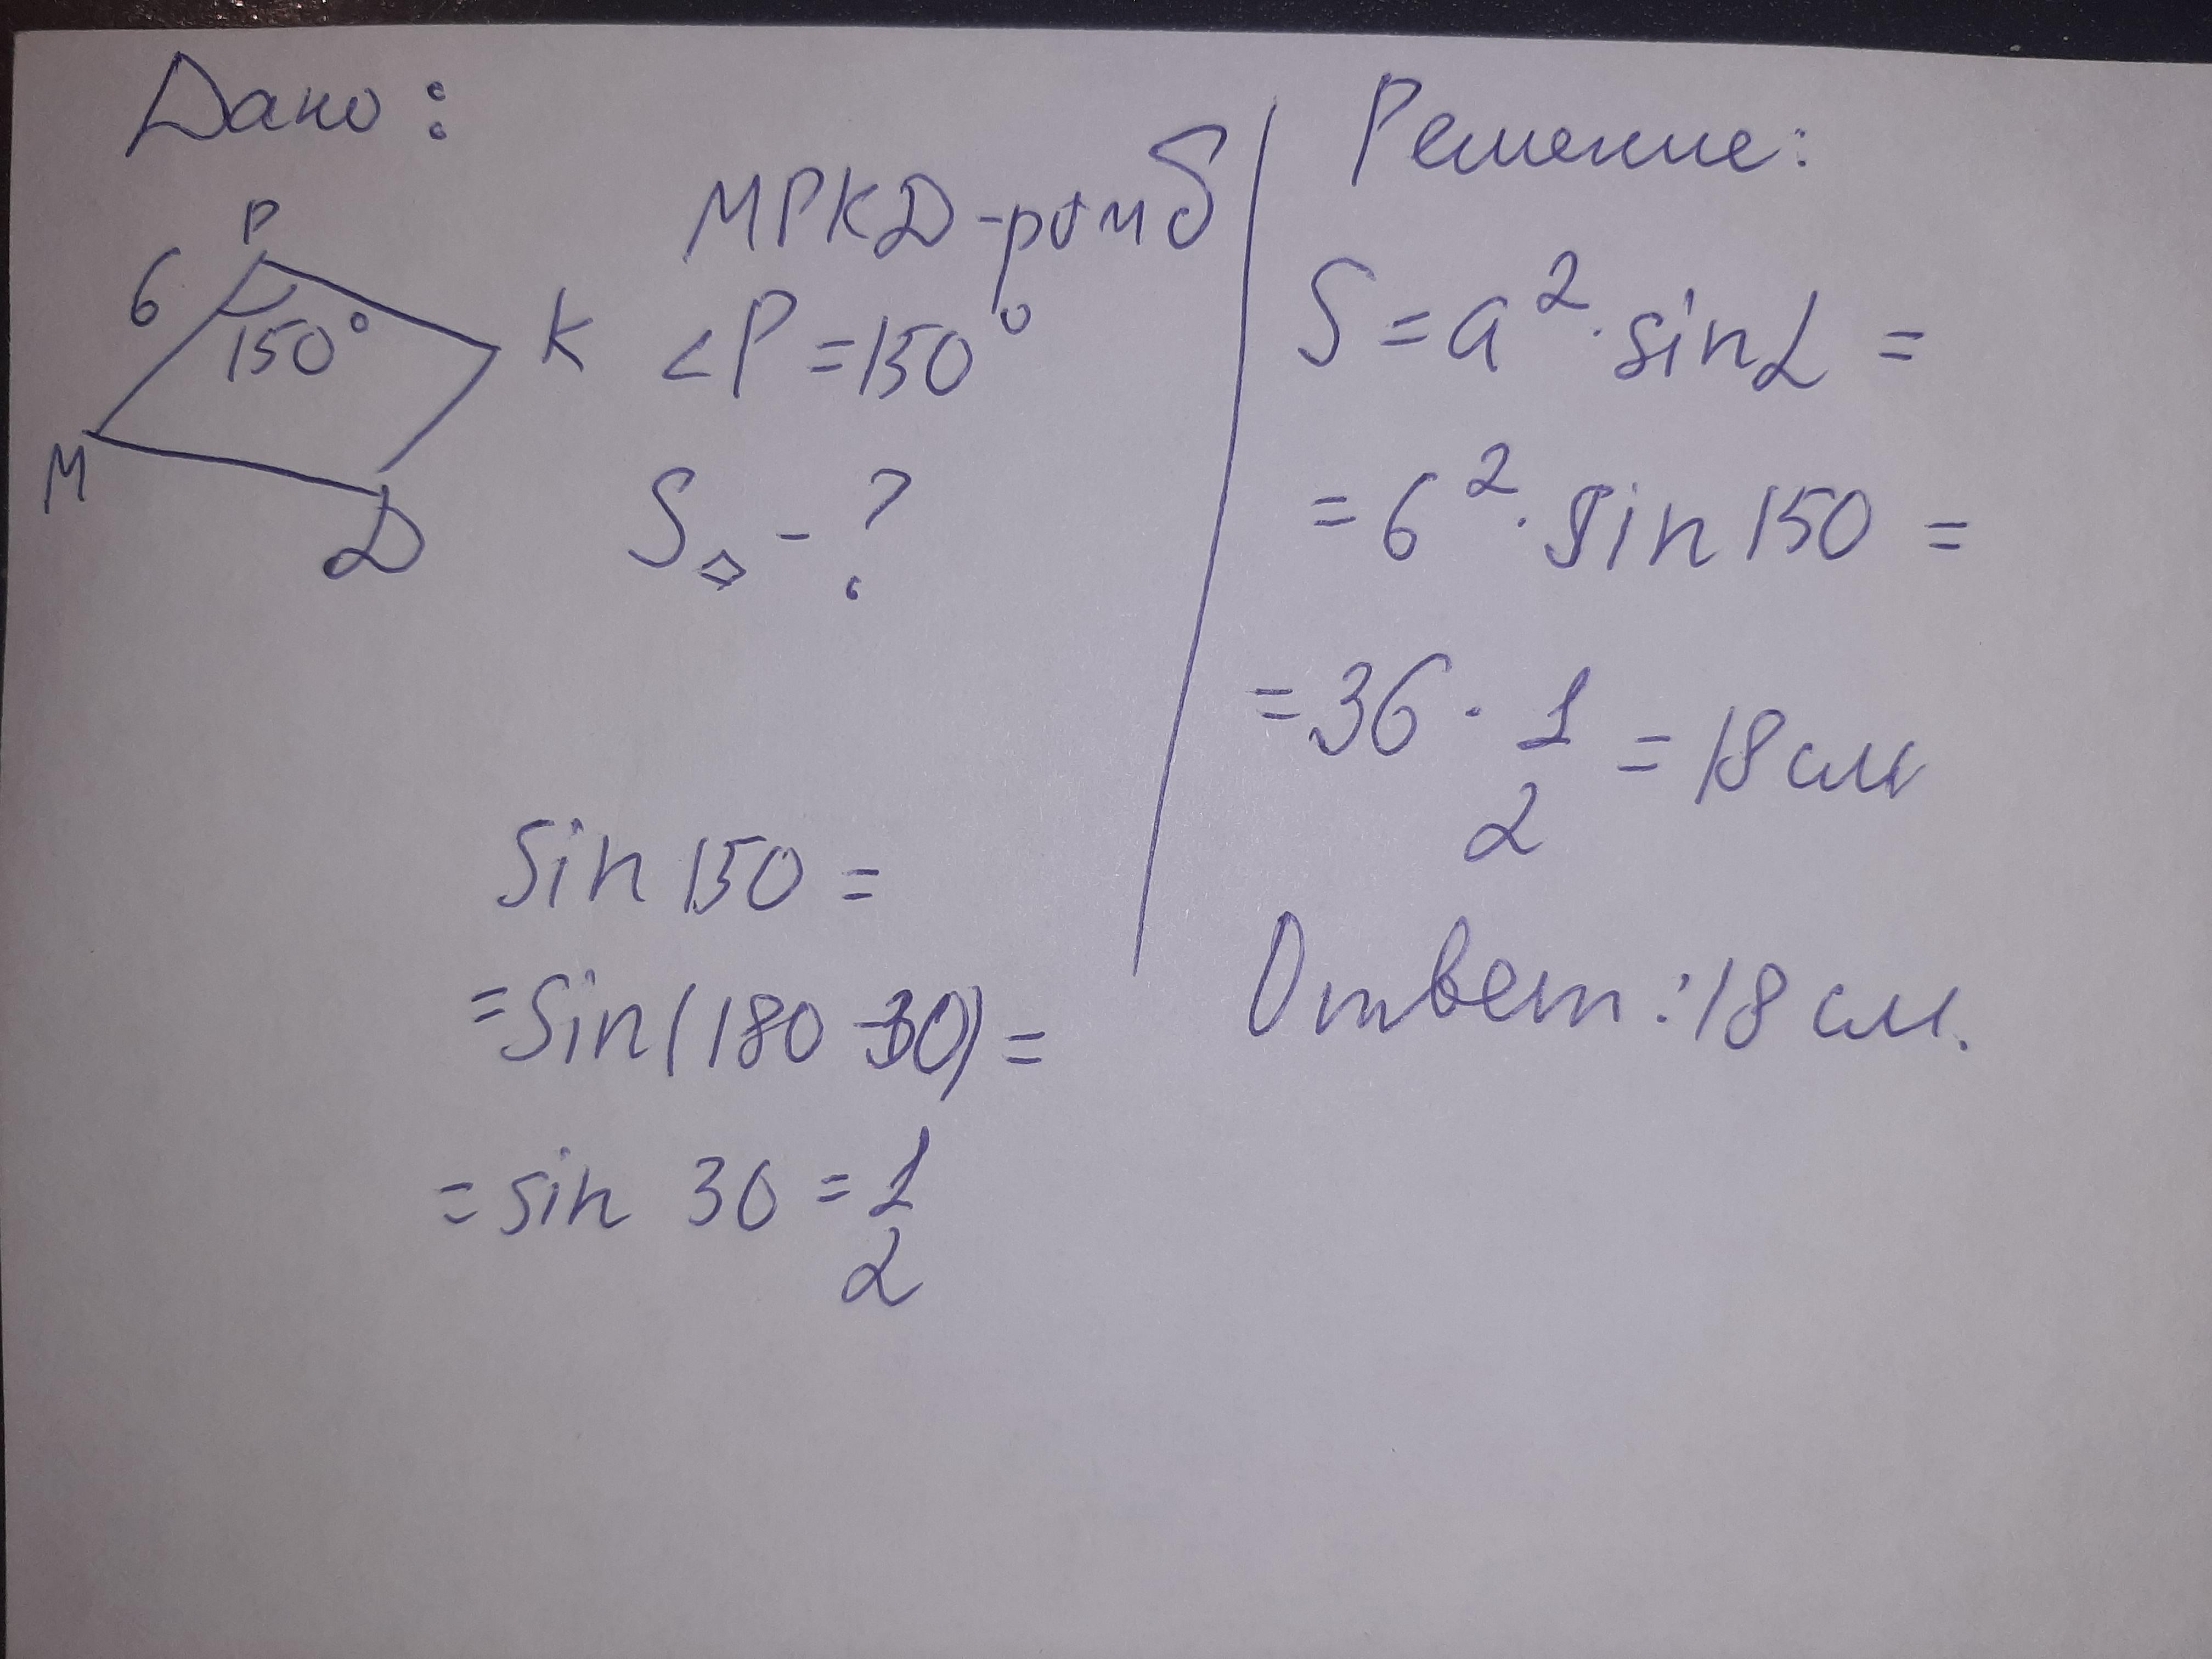 Дано:
P
6
150°
K
M
D
MPKD-ромб
<P=150°
S◇-?
sin 150=
=sin(180-30)=
=sin 30=1/2
Решение:
S=a²·sinα=
=6²·sin150=
=36·1/2=18см
Ответ:18 см.